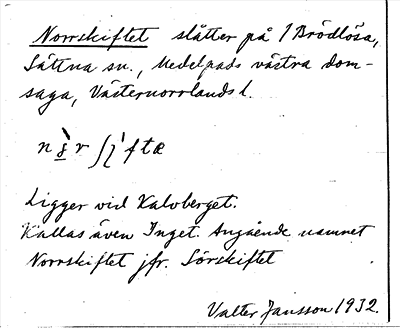 Norrskiftet slåtter på 1 Brödlösa,
Sättna sn., Medelpads västra dom-
saga, Västernorrlands l.
Ligger vid Kalvberget.
Kallas även Inget. Angående namnet
Norrskiftet jfr. Sörskiftet
Valter Jansson 1932.